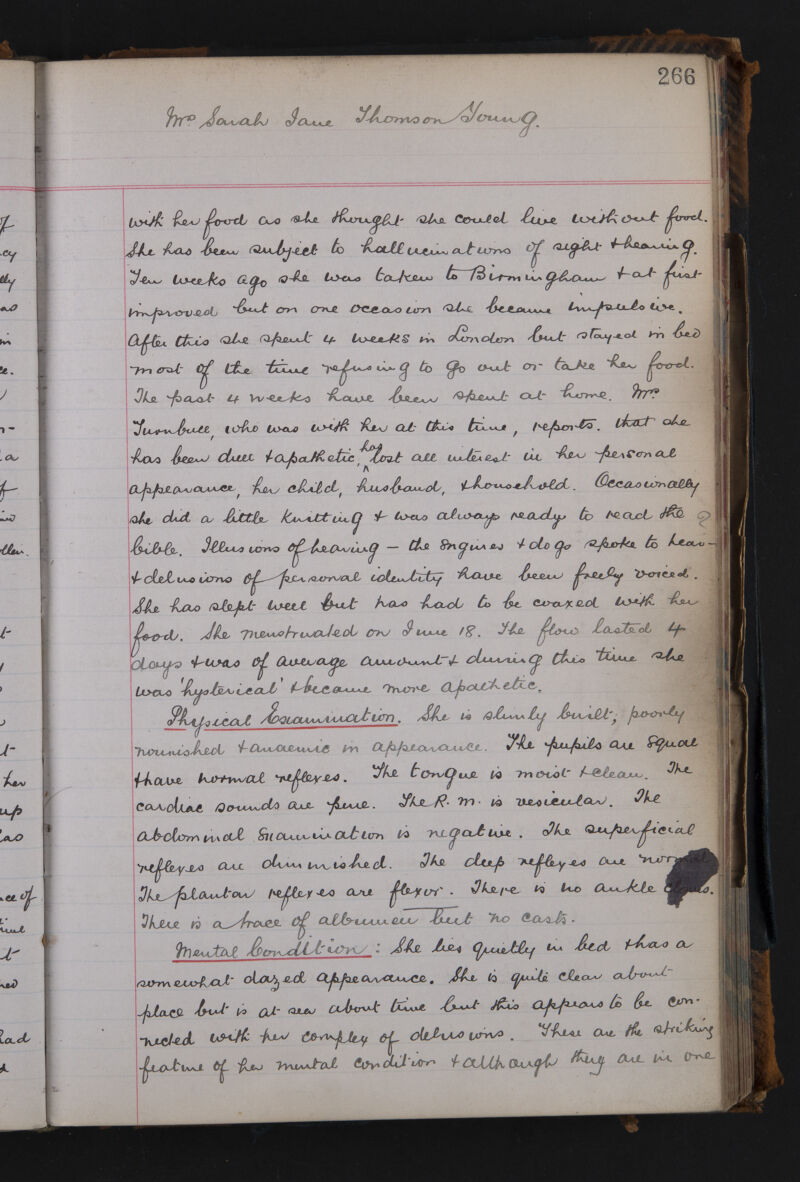 266
Mrs Sarah Jane Thomson Young.
with her food as she thought she could live without food.
She has been subject to hallucinations of sight & hearing.
Ten weeks ago she was taken to Birmingham & at first
improved but on one occasion she became impulsive.
After this she spent 4 weeks in London but stayed in bed
most of the time refusing to go out or take her food.
The past 4 weeks have been spent at home. Mrs
Turnbull, who was with her at this time, reports. that she
has been dull & apathetic, has lost all interest in her personal
appearance, her child, husband, & household. Occasionally
she did a little knitting & was always ready to read the
bible. Illusions of hearing — the Engines & dogs spoke to her —
& delusions of personal identity have been freely voiced.
She has slept well but has had to be coaxed with her
food. She menstruated on June 18. The flow lasted 4
days & was of average amount & during this time she
was 'hysterical' & became more apathetic.
Physical Examination. She is slimly built, poorly
nourished & anaemic in appearance. The pupils are Equal
& have normal reflexes. The tongue is moist & clean. The
cardiac sounds are pure. The R. m. is vesicular. The
abdominal Examination is negative. The superficial
reflexes are diminished. The deep reflexes are normal
The plantar reflexes are flexor. There is no ankle clonus.
There is a trace of albumen but no casts.
Mental Condition: She lies quietly in bed & has a
somewhat dazed appearance. She is quite clear about
place but is at sea about time but this appears to be con-
nected with her complex of delusions. These are the striking
feature of her mental condition & although they are in one